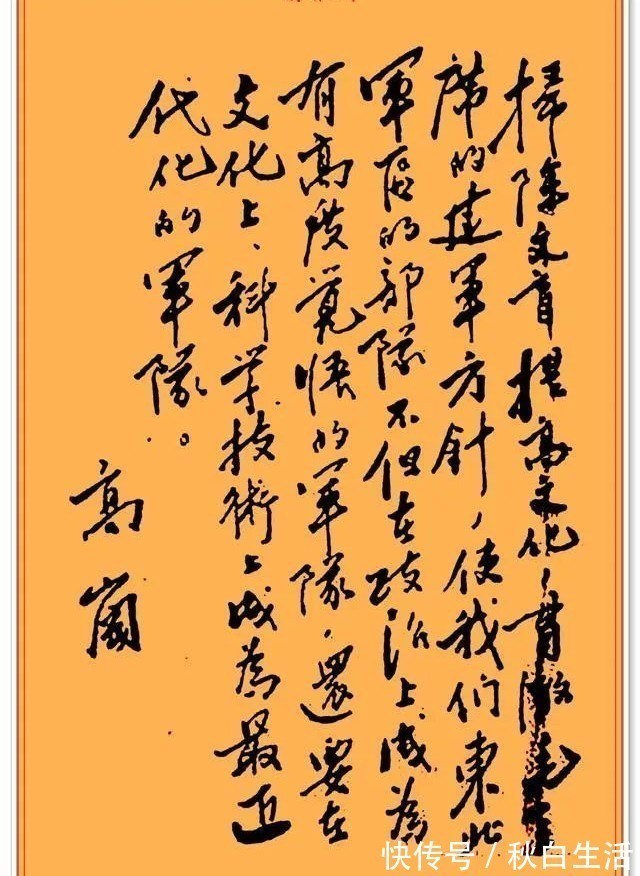 掃除文盲提高文化，貫澈毛主
席的建軍方針，使我们東北
軍區的部隊不但在政治上成為
有高度覺悟的軍隊，還要在
文化上、科学技術上成為最近
代化的軍隊。
高崗
快传号/秋白生活